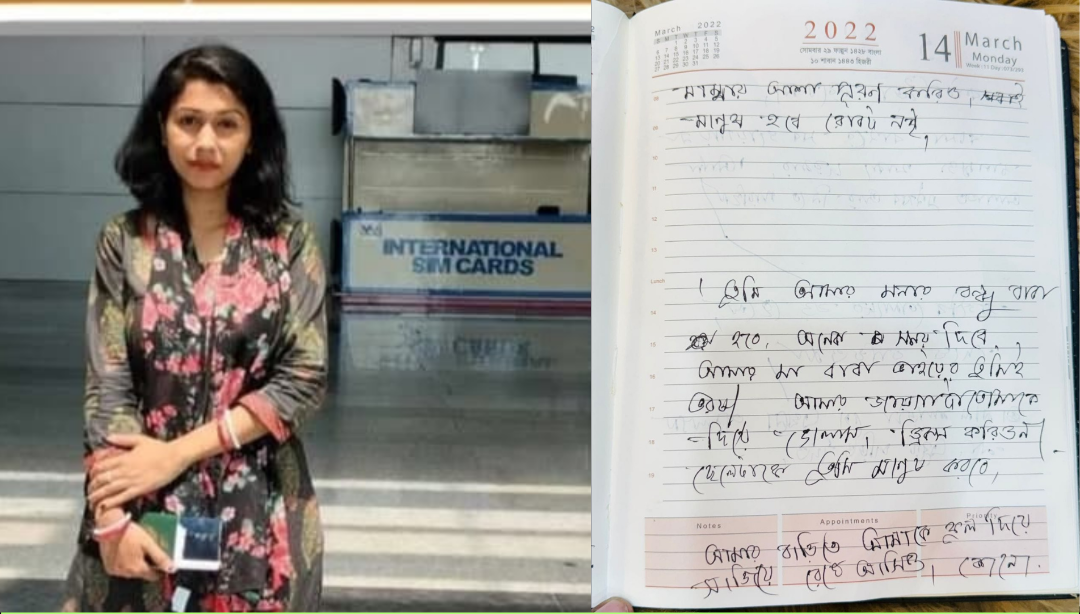 INTERNATIONAL
SIM CARDS
March 2022
2022
সোমবার ২৯ ফাল্গুন ১৪২৮ বাংলা
১০ শাবান ১৪৪৩ হিজরী
14
March
Monday
আশা পূরণ করিও,
মানুষ হবে রোবট নয়,
তুমি আমার মনার বন্ধু বাবা
হবে, অনেক সময় দিবে,
আমার মা বাবা ভাইয়ের তুমিই
ভরষা। আমার
দিয়ে গেলাম,
তুমি মানুষ করবে,
Lunch
Notes
Appointments
Priority
আমার বাড়িতে আমাকে ফুল দিয়ে
সাজিয়ে রেখে আসিও,